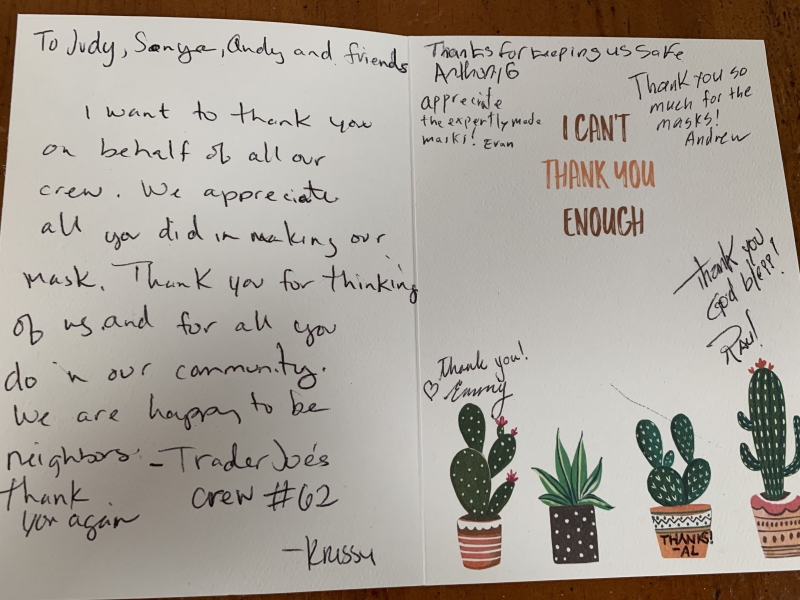 To Judy, Sonya, Andy and friends
I want to thank you
on behalf of all our
crew. We appreciate
all you did in making our
mask. Thank you for thinking
of us and for all you
do in our community.
We are happy to be
neighbors. - Trader Joe's
crew #62
thank
you again
- Krissy
Thanks for keeping us safe
Anthony G
appreciate
the expertly made
masks! Evan
Thank you so
much for the
masks!
Andrew
I CAN'T
THANK YOU
ENOUGH
Thank you
God bless!
Raul
Thank you!
♡ Emmy
THANKS!
-AL